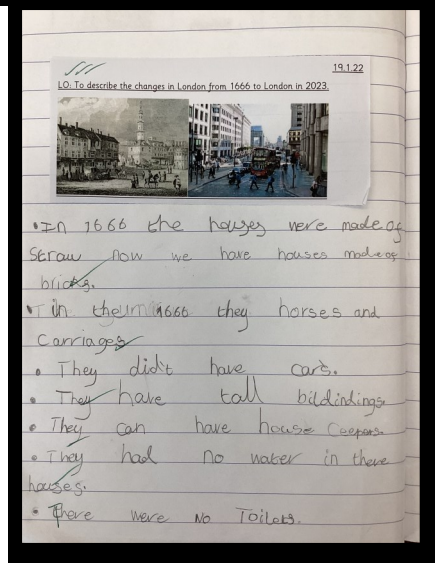 19.1.22
LO: To describe the changes in London from 1666 to London in 2023.
• In 1666 the houses were made of
Straw now we have houses made of
bricks.
• in 1666 they horses and
Carriages
• They did't have cars.
• They have tall bildindings.
• They can have house Ceepers.
• They had no water in there
houses.
• There were No Toilets.